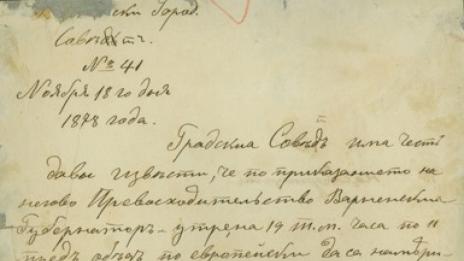 ски Град.
Совѣтъ.
№ 41
Ноября 18го дня
1878 года.
Градския Совѣтъ има честь
дава извѣстиı, че по приказанието на
негово Превосходителство Варненския
Губернаторъ утрена 19 т. м. часа по 11
предъ обѣдъ по европейски да са намѣри-